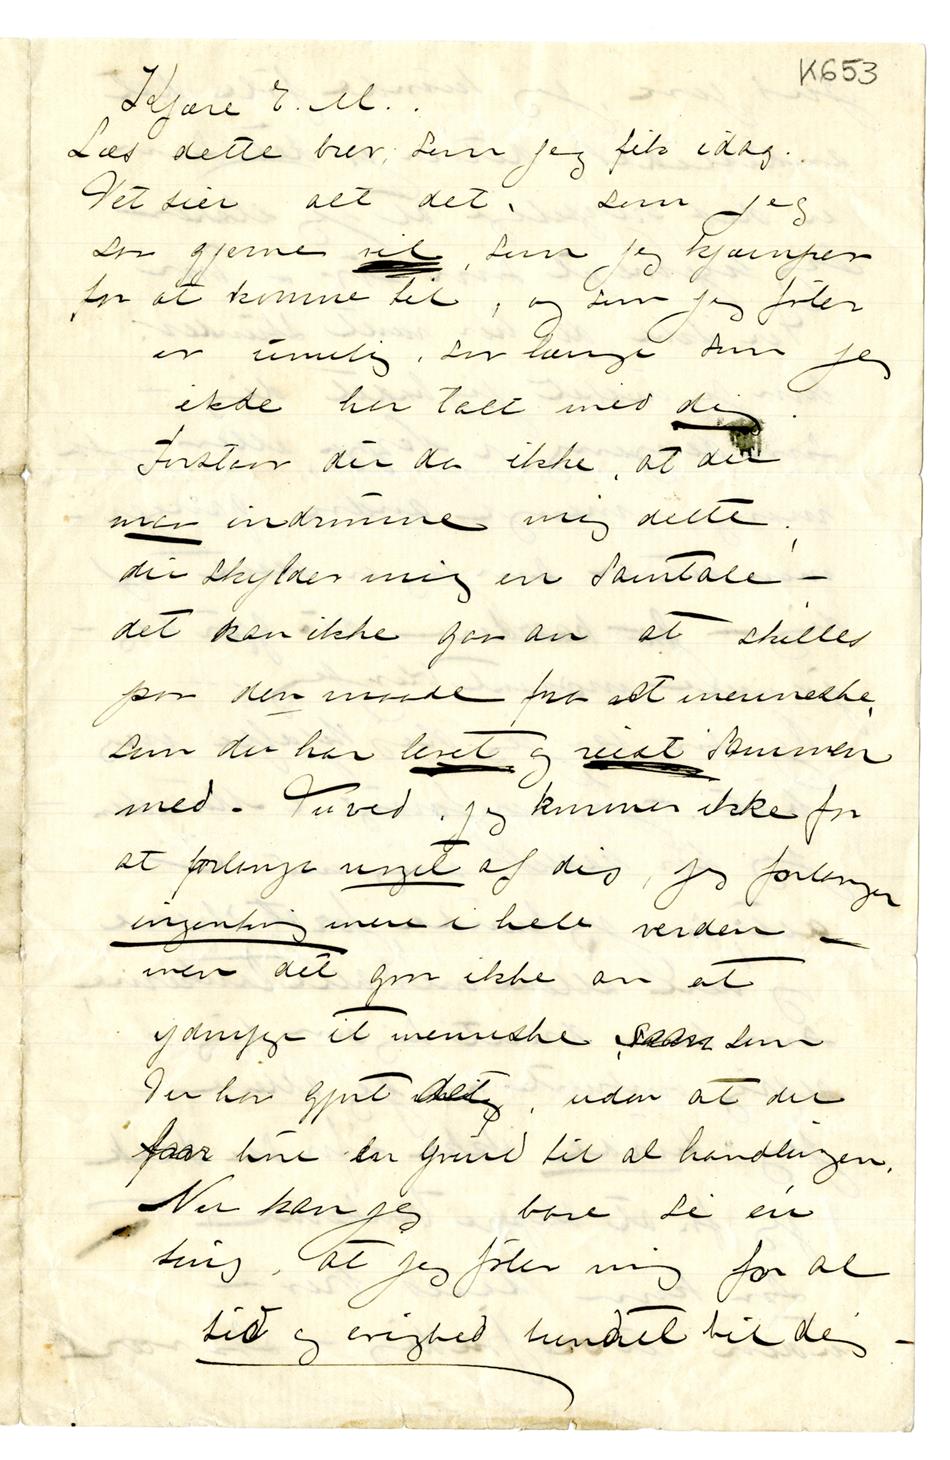 K653
Kjære E. M..
Læs dette brev, som jeg fik idag.
Det sier alt det, som jeg
saa gjerne vil, som jeg kjæmper
for at komme til, og som jeg föler
er umulig, saa længe som jeg
ikke har talt med dig.
Forstaar du da ikke, at du
maa indrömme mig dette,
du skylder mig en Samtale –
det kan ikke gaa an at skilles
paa den maade fra et menneske,
som du har levet og reist Sammen
med – Du ved, jeg kommer ikke for
at forlange noget af dig, jeg forlanger
ingenting mere i hele verden –
men det gaar ikke an at
ydmyge et menneske, saan som
Du har gjort det, uden at du
faar höre en Grund til al handlingen.
Nu kan jeg bare si én
ting, at jeg föler mig for al
tid og evighed bundet til dig –